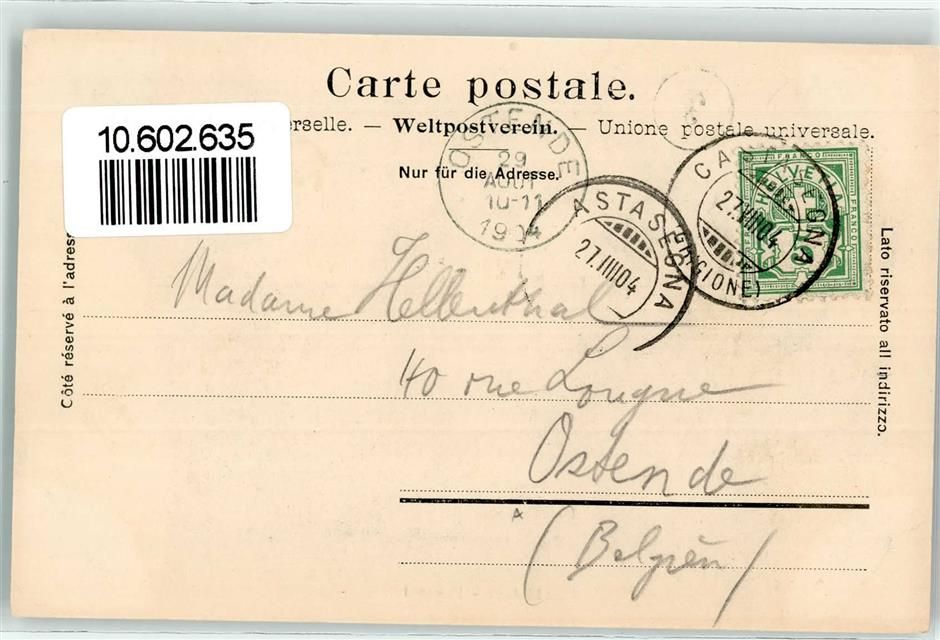 Carte postale.
10.602.635
erselle. — Weltpostverein. — Unione postale universale.
Nur für die Adresse.
OSTENDE
29
AOUT
10-11
1904
CASTASEGNA
27.VIII.04
CASTASEGNA
27.VIII.04
FRANCO
HELVETIA
FRANCO
Côté réservé à l'adresse
Lato riservato all indirizzo.
Madame Hellenthal
40 rue Longue
Ostende
(Belgien)